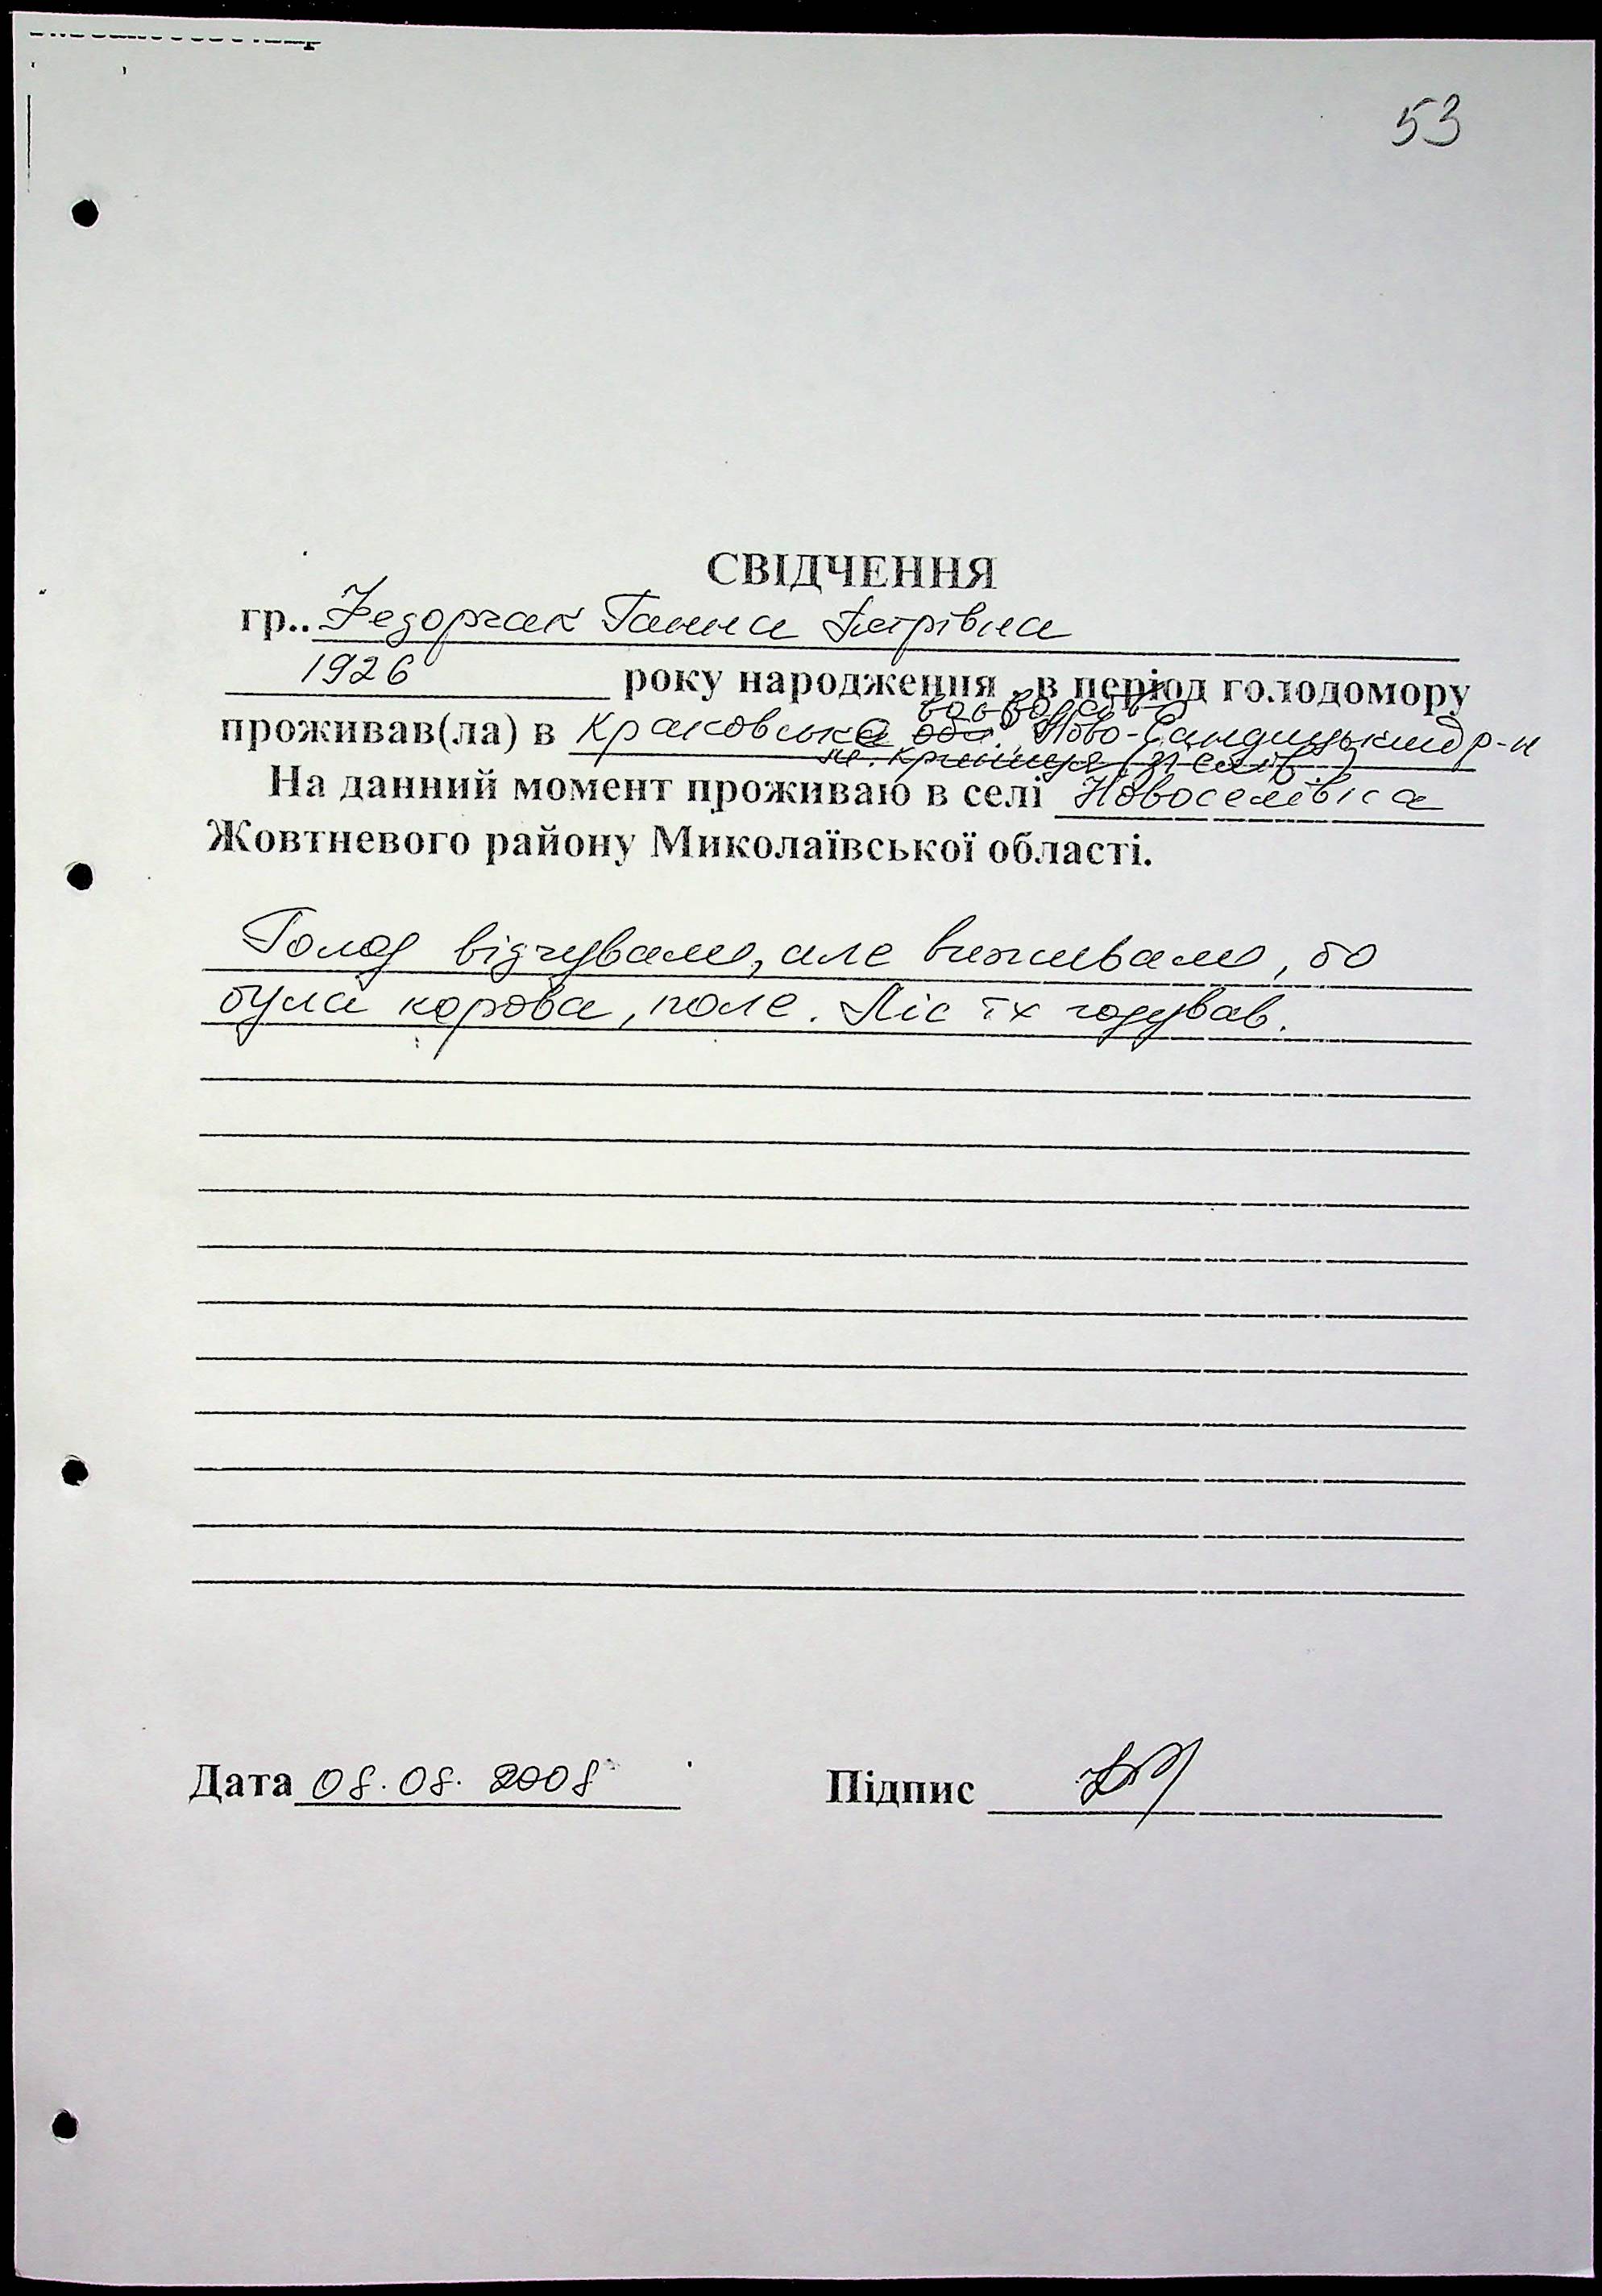 53
СВІДЧЕННЯ
гр.. Федорчак Ганна Петрівна
1926 року народження , в період голодомору
воєводство
проживав(ла) в Краковське обл. Ново-Сандицький р-н
м. Криниця
На данний момент проживаю в селі Новоселівка
Жовтневого району Миколаївської області.
Голод відчували, але виживали, бо
була корова, поле. Ліс їх годував.
Дата 08.08.2008 Підпис